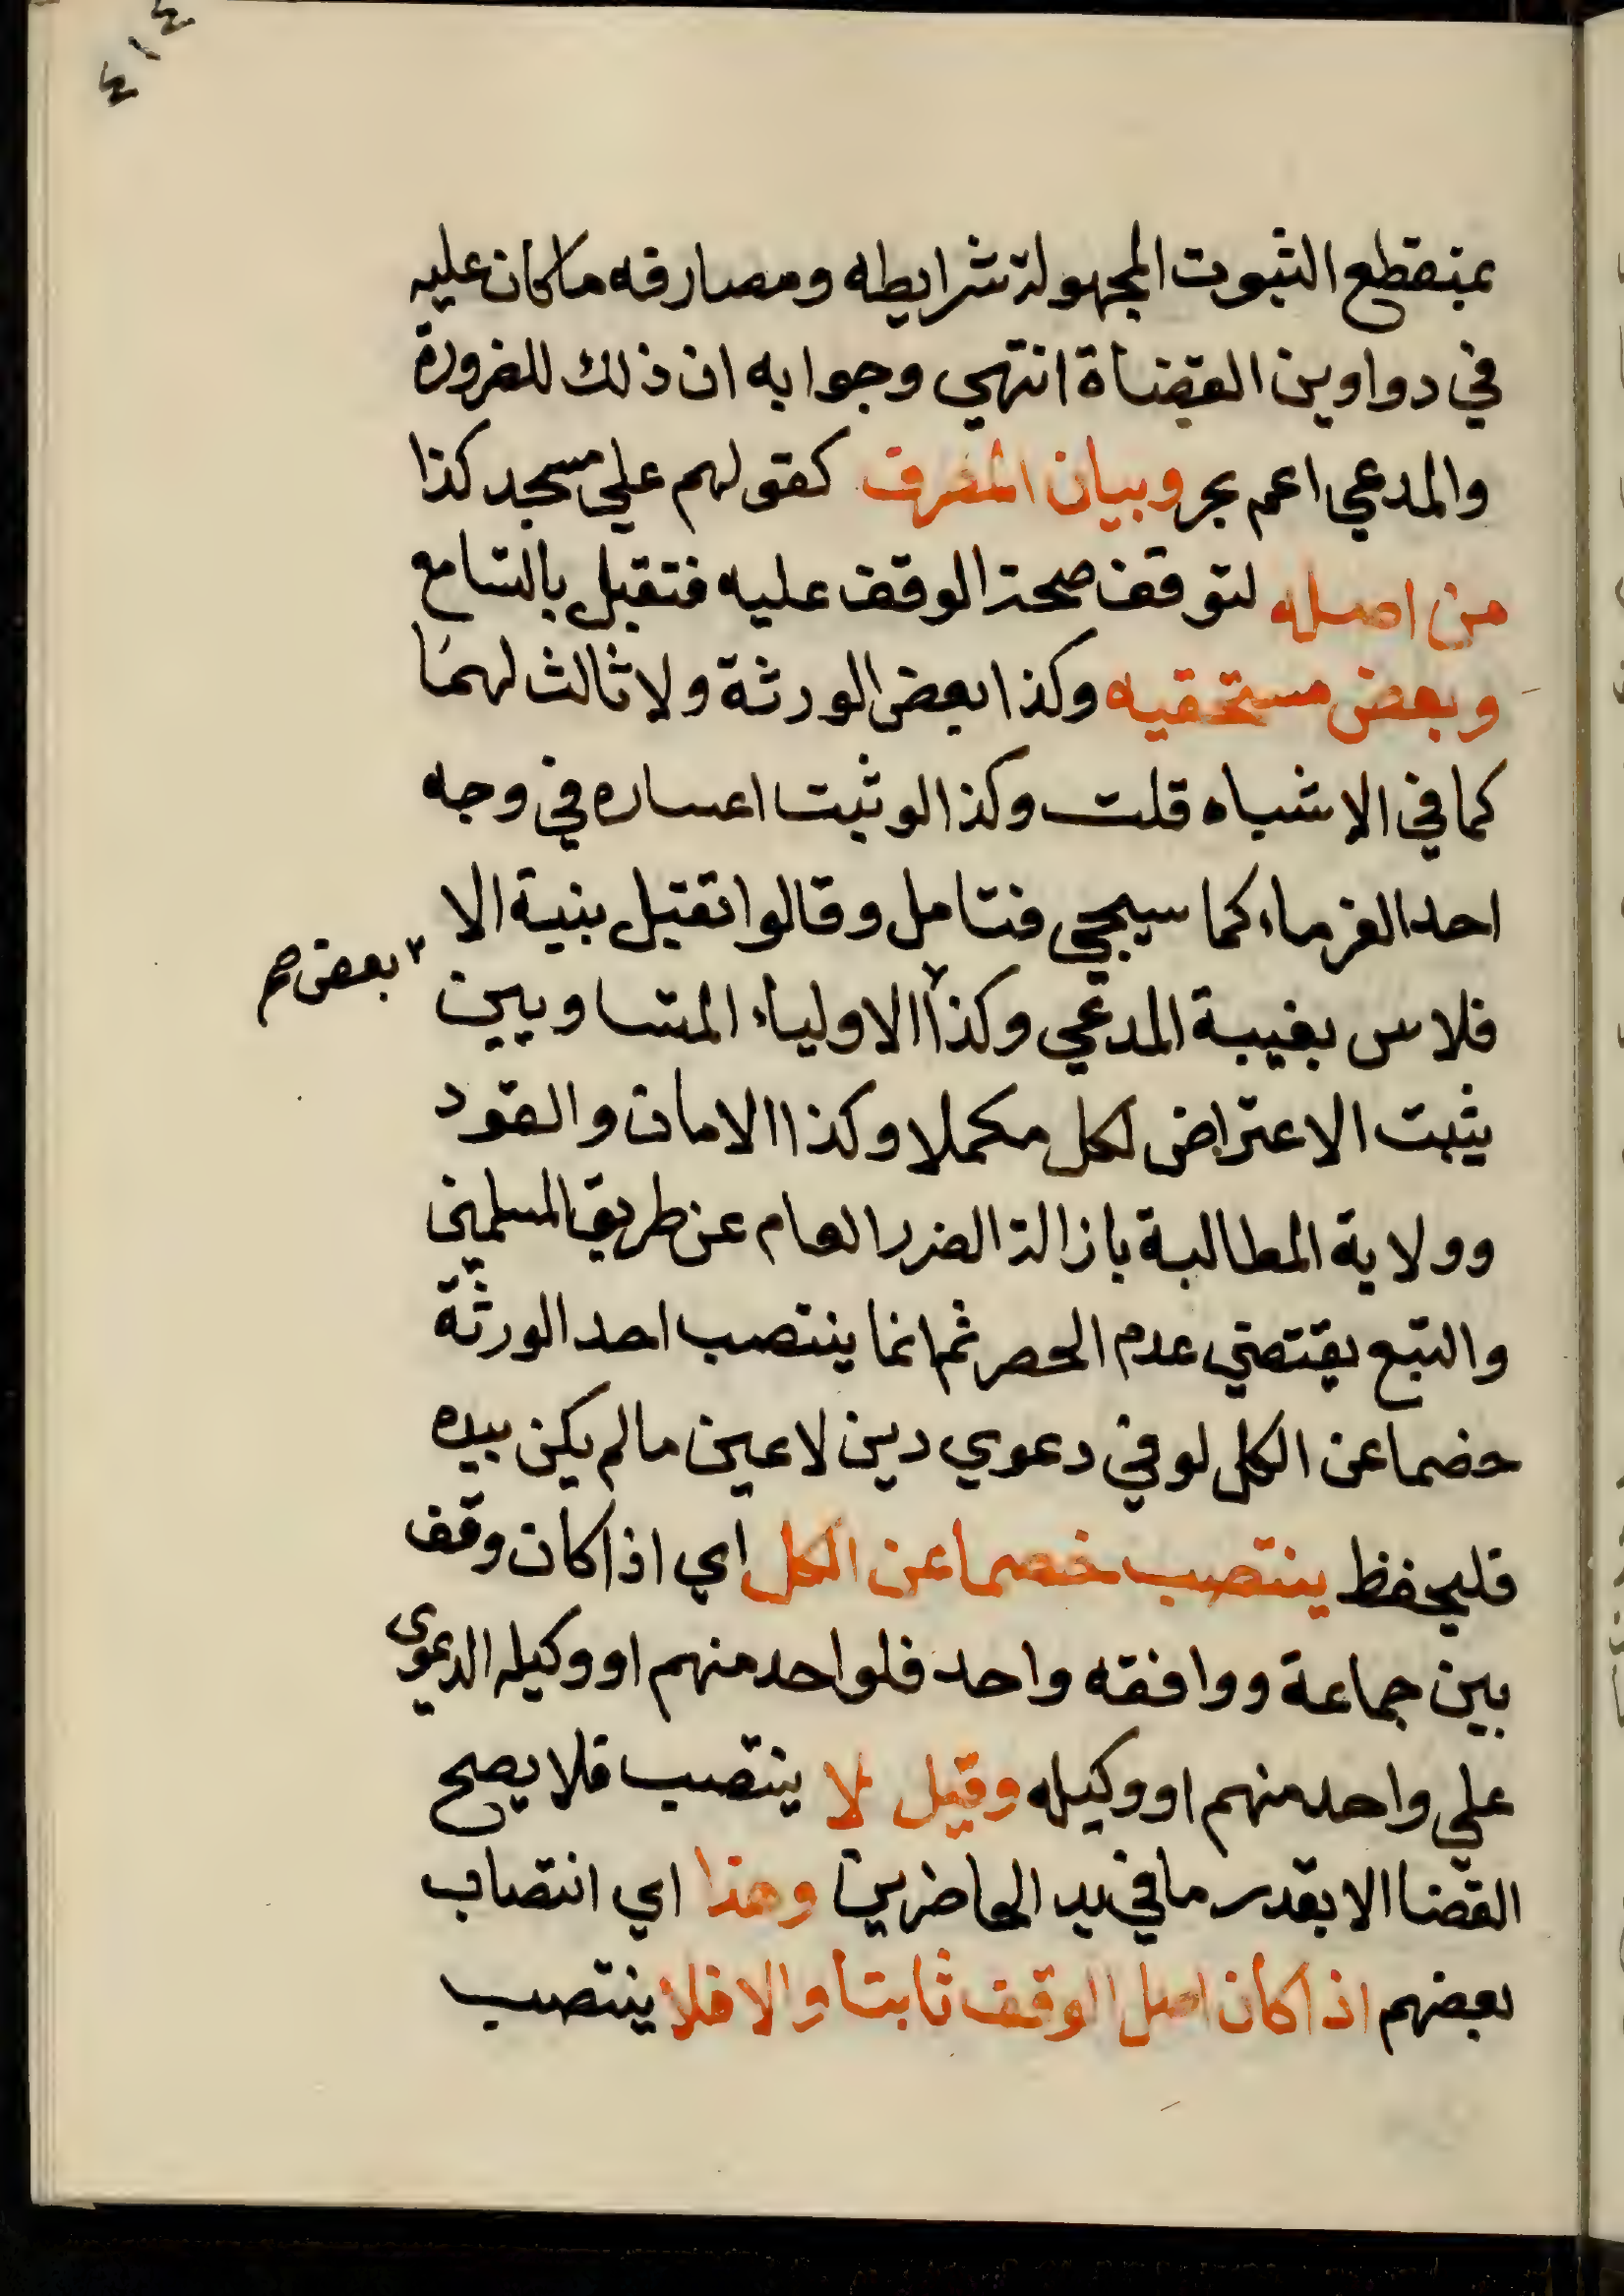 ٤١٤
بمنقطع الثبوت المجهولة شرايطه ومصارفه ما كان عليه
في دواوين القضاة انتهي وجوابه ان ذلك للضرورة
والمدعي اعم بحر وبيان المصرف كقولهم علي مسجد كذا
من اصله لتوقف صحة الوقف عليه فتقبل بالتسامع
وبعض مستحقيه وكذا بعض الورثة ولا ثالث لهما
كما في الاشباه قلت وكذا لو ثبت اعساره في وجه
احد الغرماء كما سيجي فتامل وقالوا تقبل بنية الا
فلاس بغيبة المدعي وكذا الاولياء المتساويين
٢ بعض صح
يثبت الاعتراض لكل مكملا وكذا الامان والقود
وولاية المطالبة بازالة الضرر العام عن طريق المسلمين
والتبع يقتضي عدم الحصر ثم انما ينتصب احد الورثة
حضما عن الكل لو في دعوي دين لا عين ما لم يكن بيده
فليحفظ ينتصب خصما عن الكل اي اذا كان وقف
بين جماعة ووافقه واحد فلواحد منهم او وكيله الدعوى
علي واحد منهم او وكيله وقيل لا ينتصب فلا يصح
القضا الا بقدر ما في يد الحاضرين وهذا اي انتصاب
بعضهم اذا كان اصل الوقف ثابتا والا فلا ينتصب